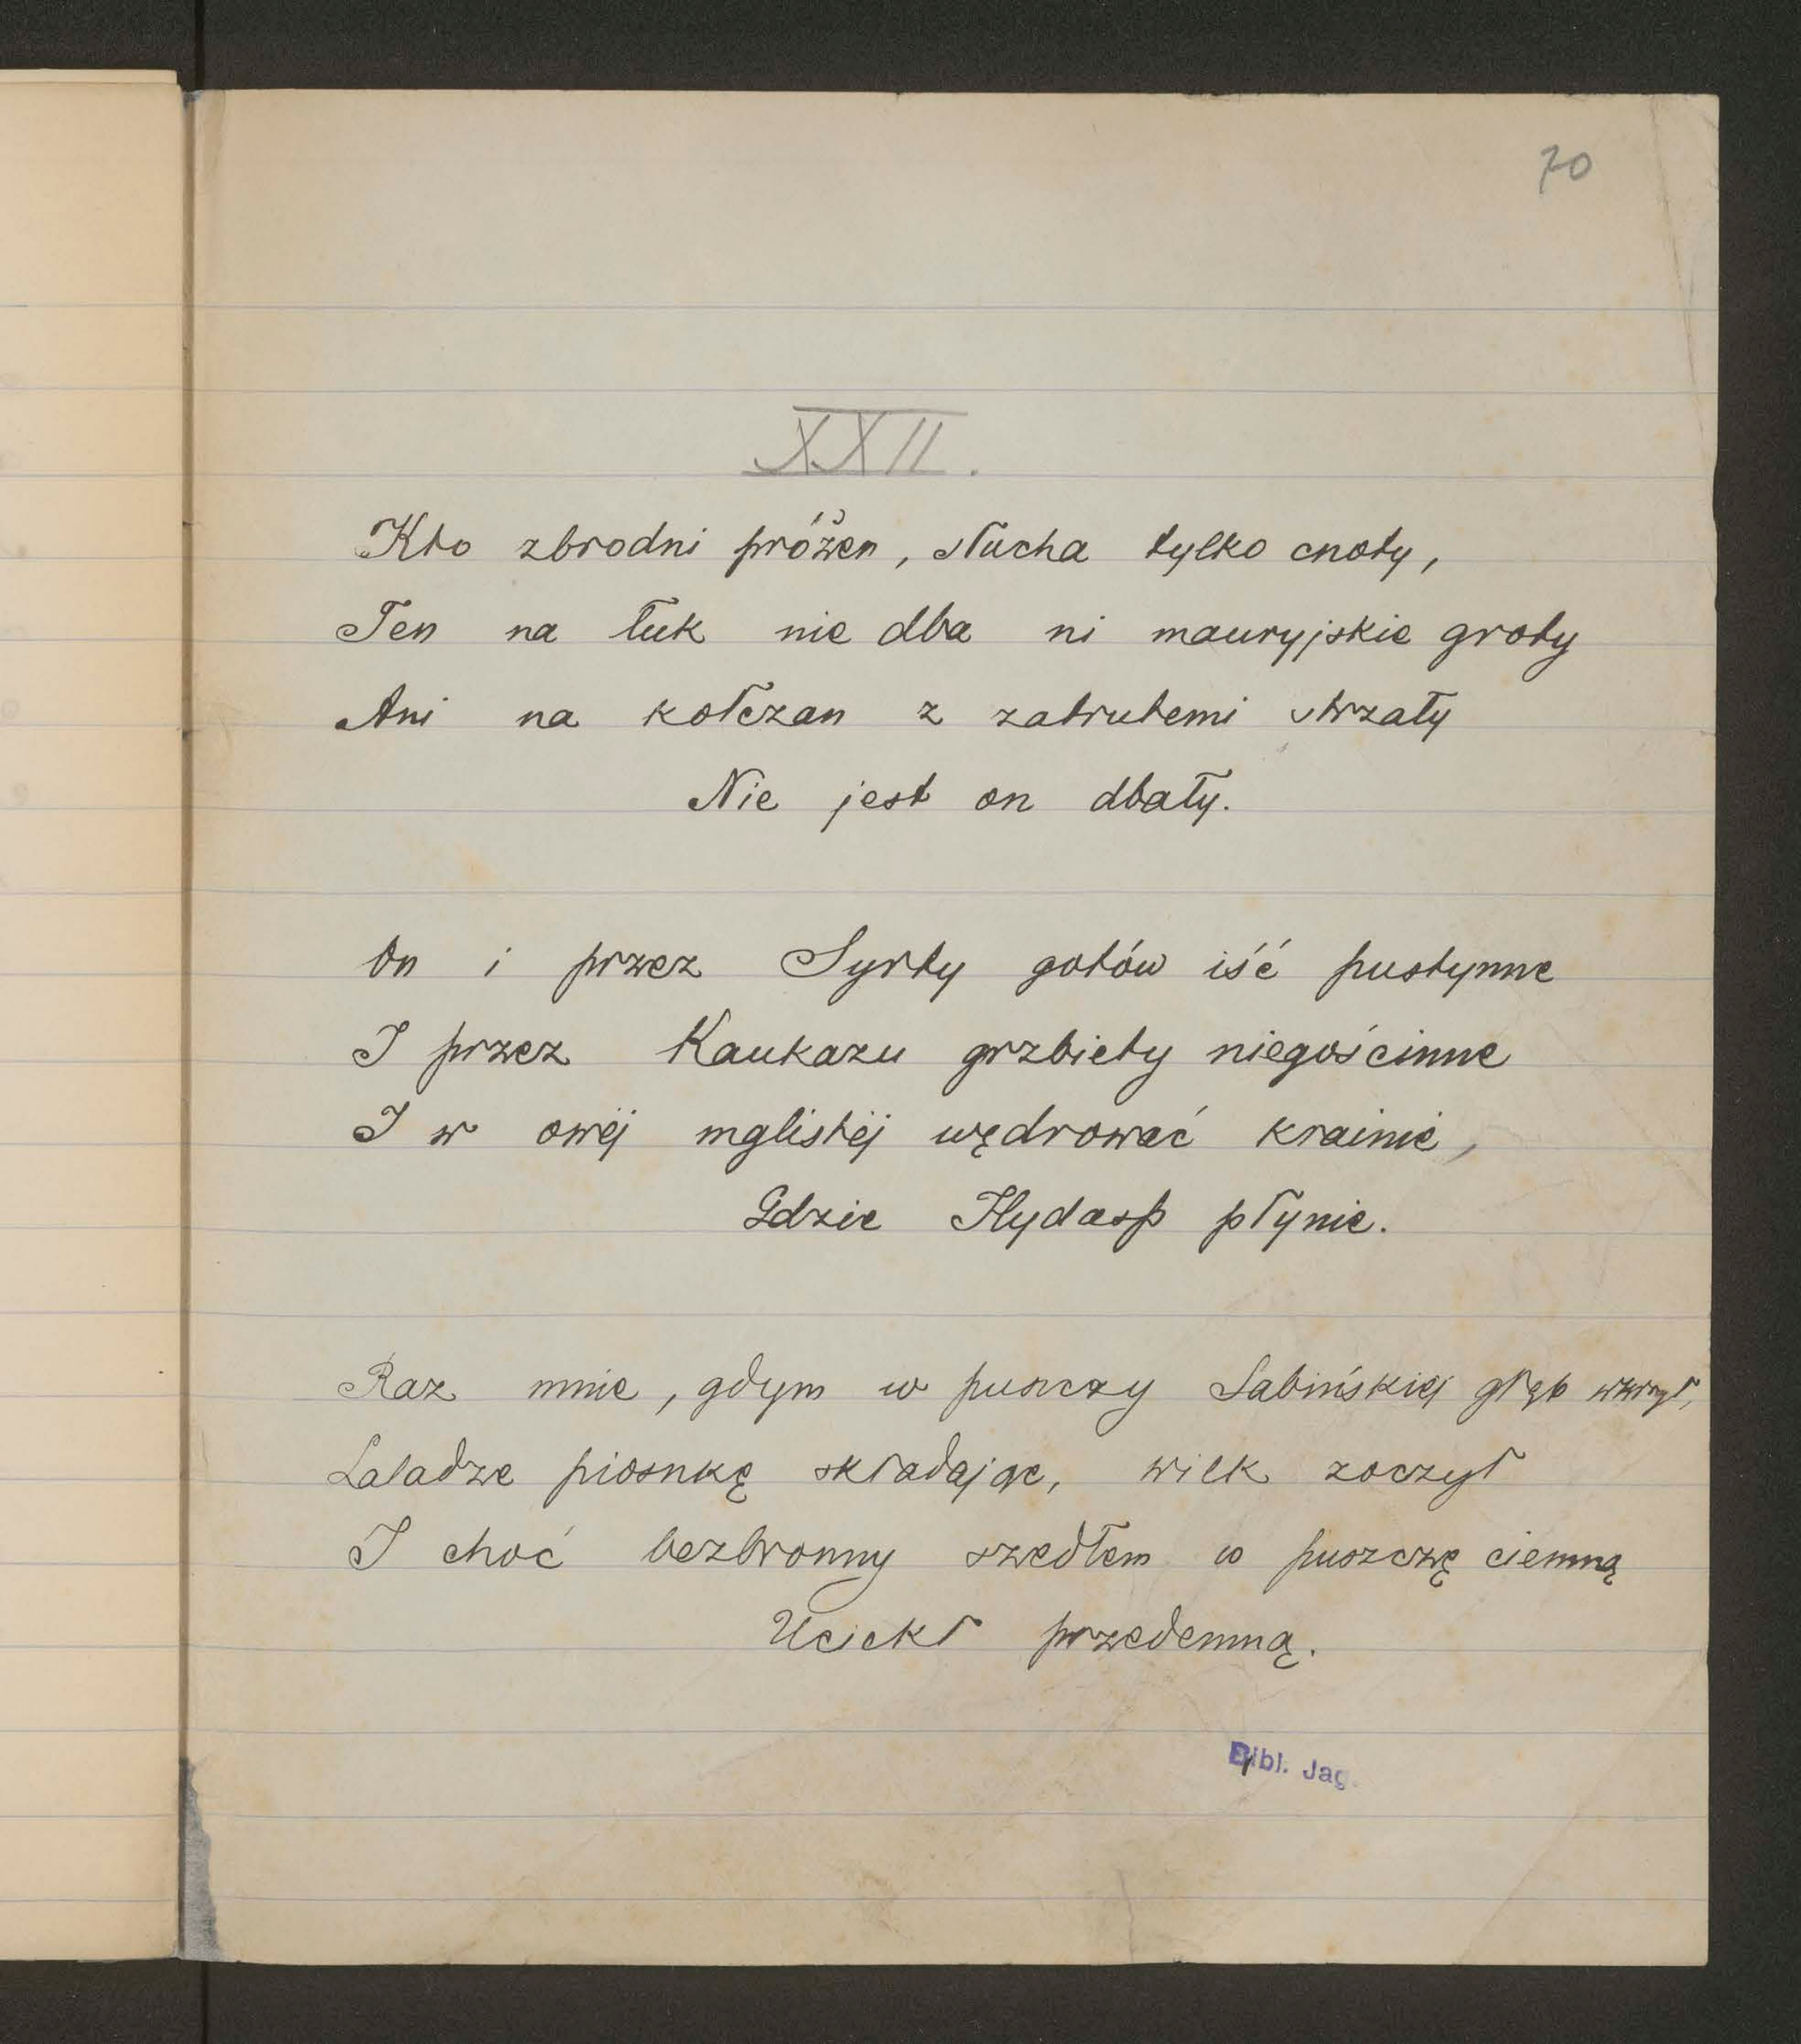 70
XXII.
Kto zbrodni próżen, słucha tylko cnoty,
Ten na łuk nie dba ni mauryjskie groty
Ani na kołczan z zatrutemi strzały
Nie jest on dbały.
On i przez Syrty gotów iść pustynne
I przez Kaukazu grzbiety niegościnne
I w owéj mglistéj wędrować krainie,
Gdzie Hydasp płynie.
Raz mnie, gdym w puszczy Sabińskiéj głąb wkroczył,
Laladze piosnkę składając, wilk zoczył
I choć bezbronny szedłem w puszczę ciemną
Uciekł przedemną.
Bibl. Jag.